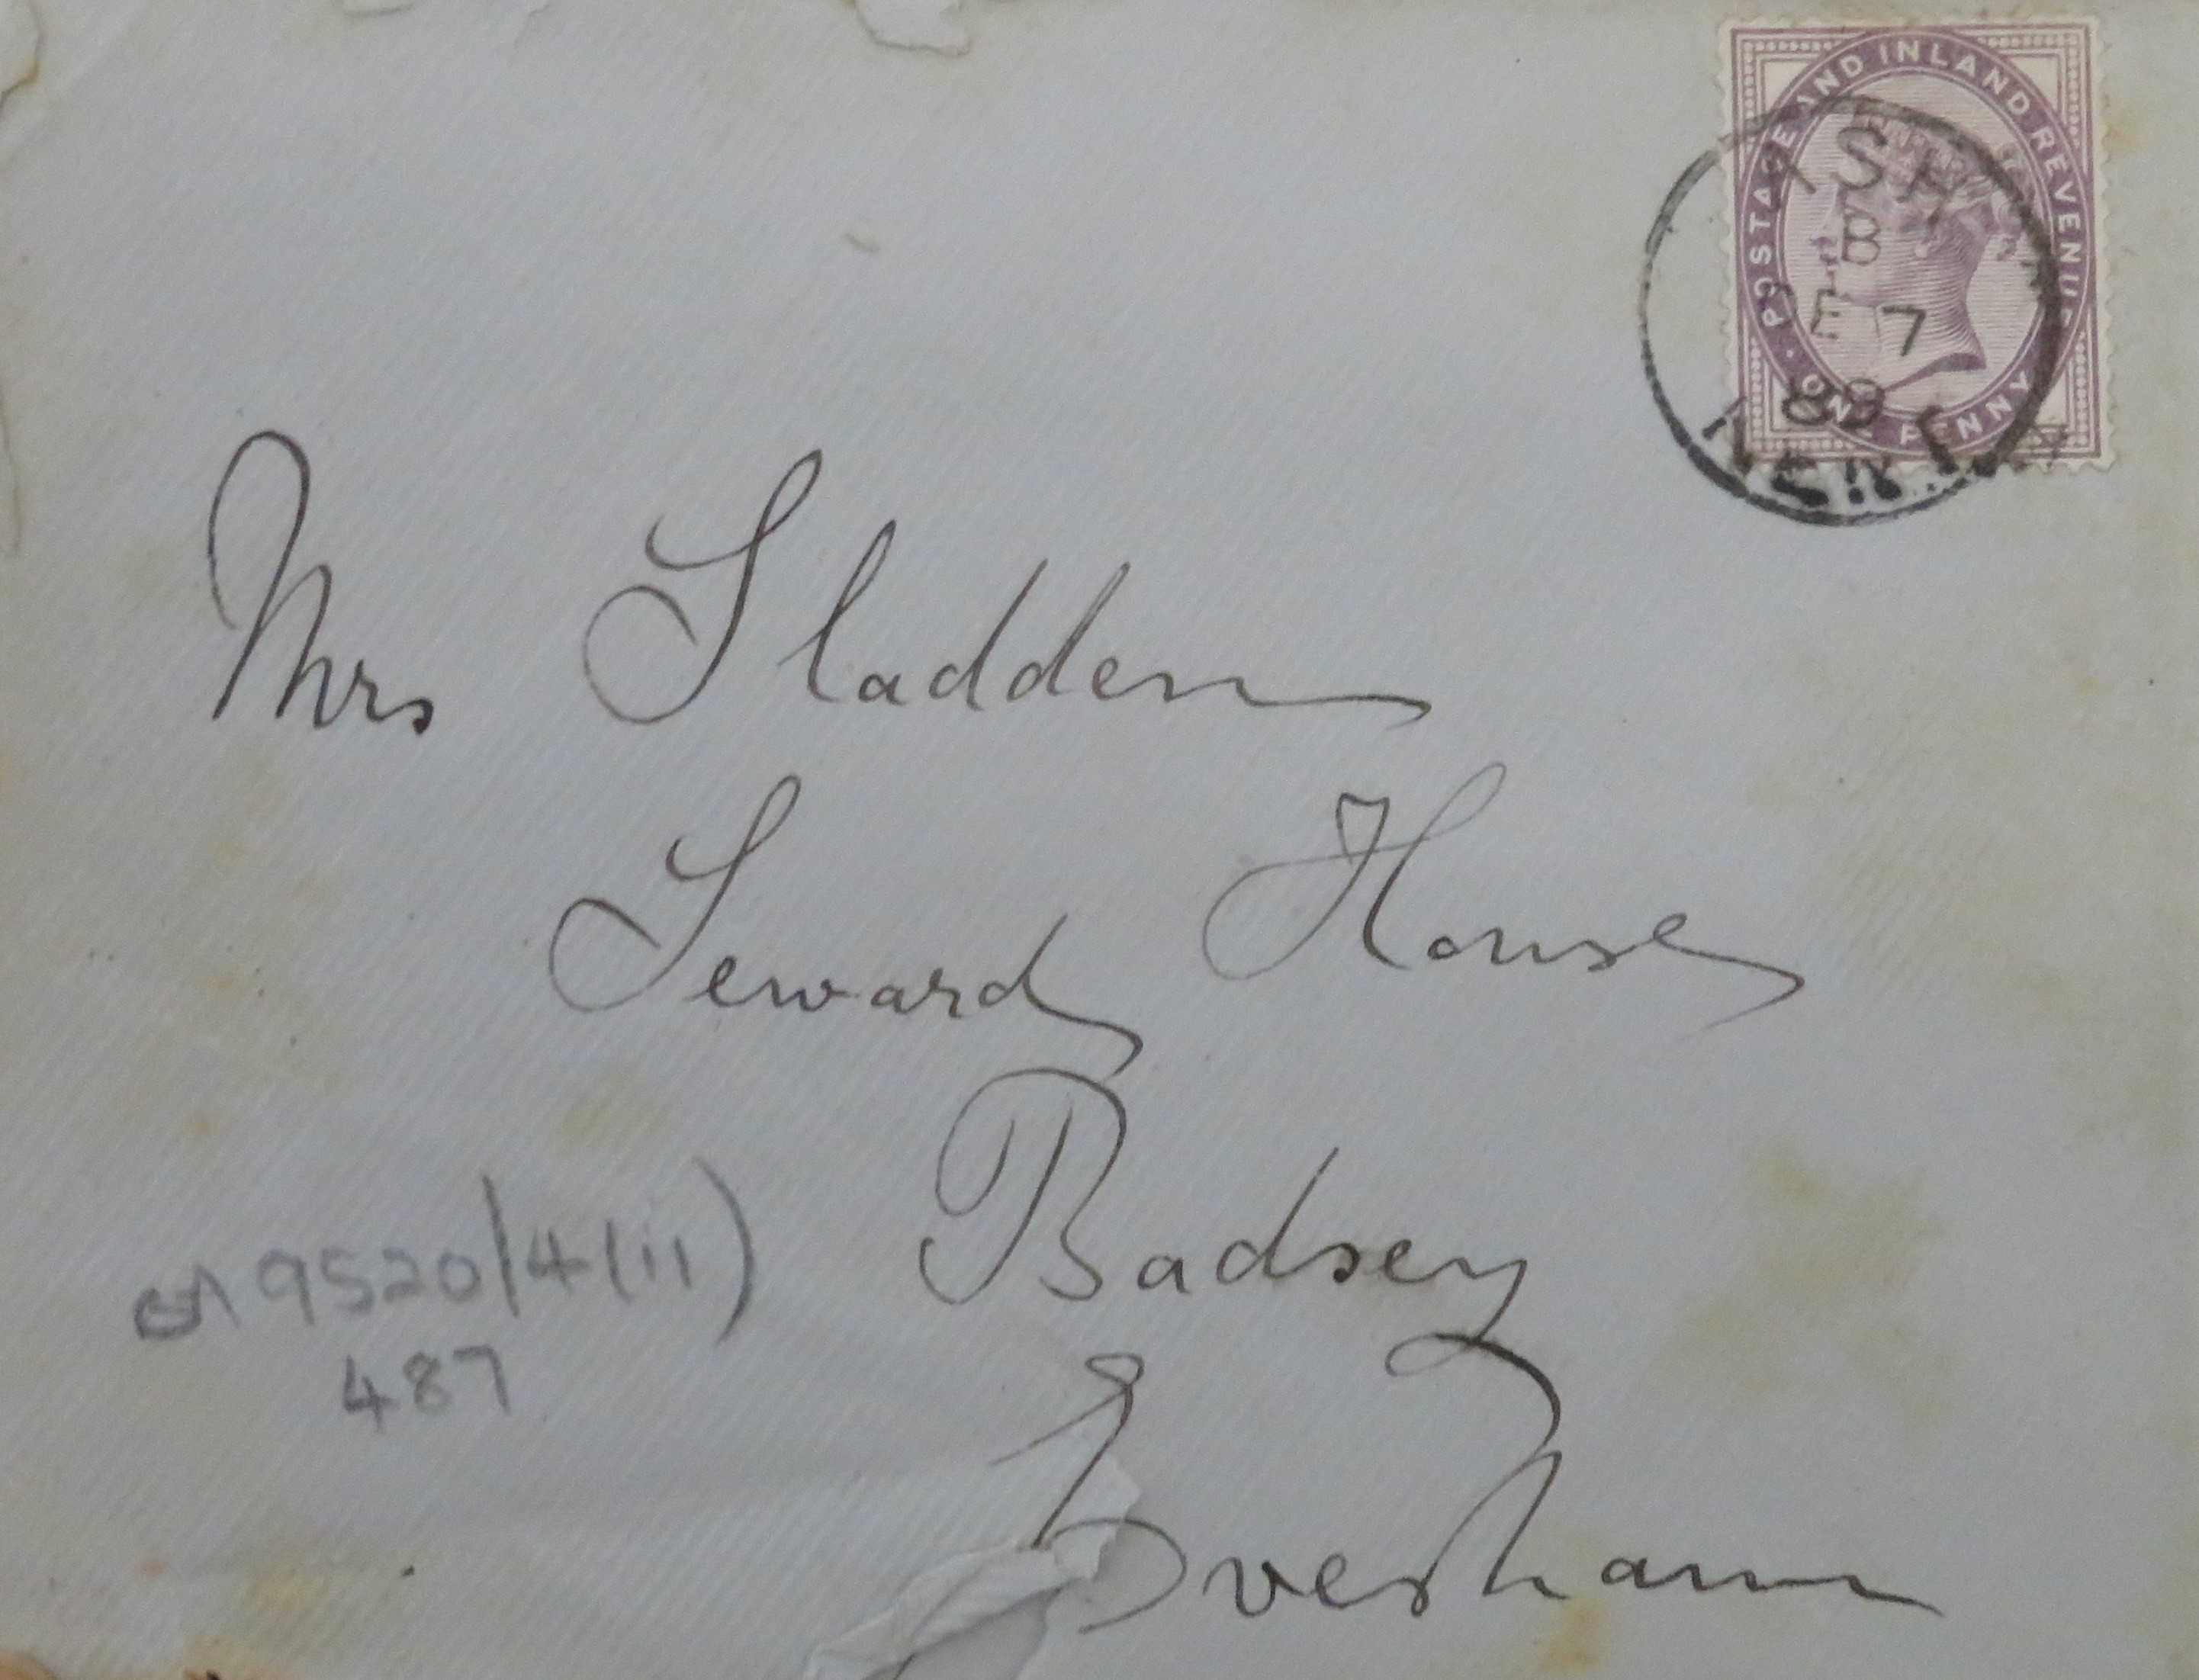 POSTAGE AND INLAND REVENUE
ONE PENNY
ASH
B
FE 7
89
Mrs Sladden
Seward House
Badsey
Evesham
9520/4(ii)
487